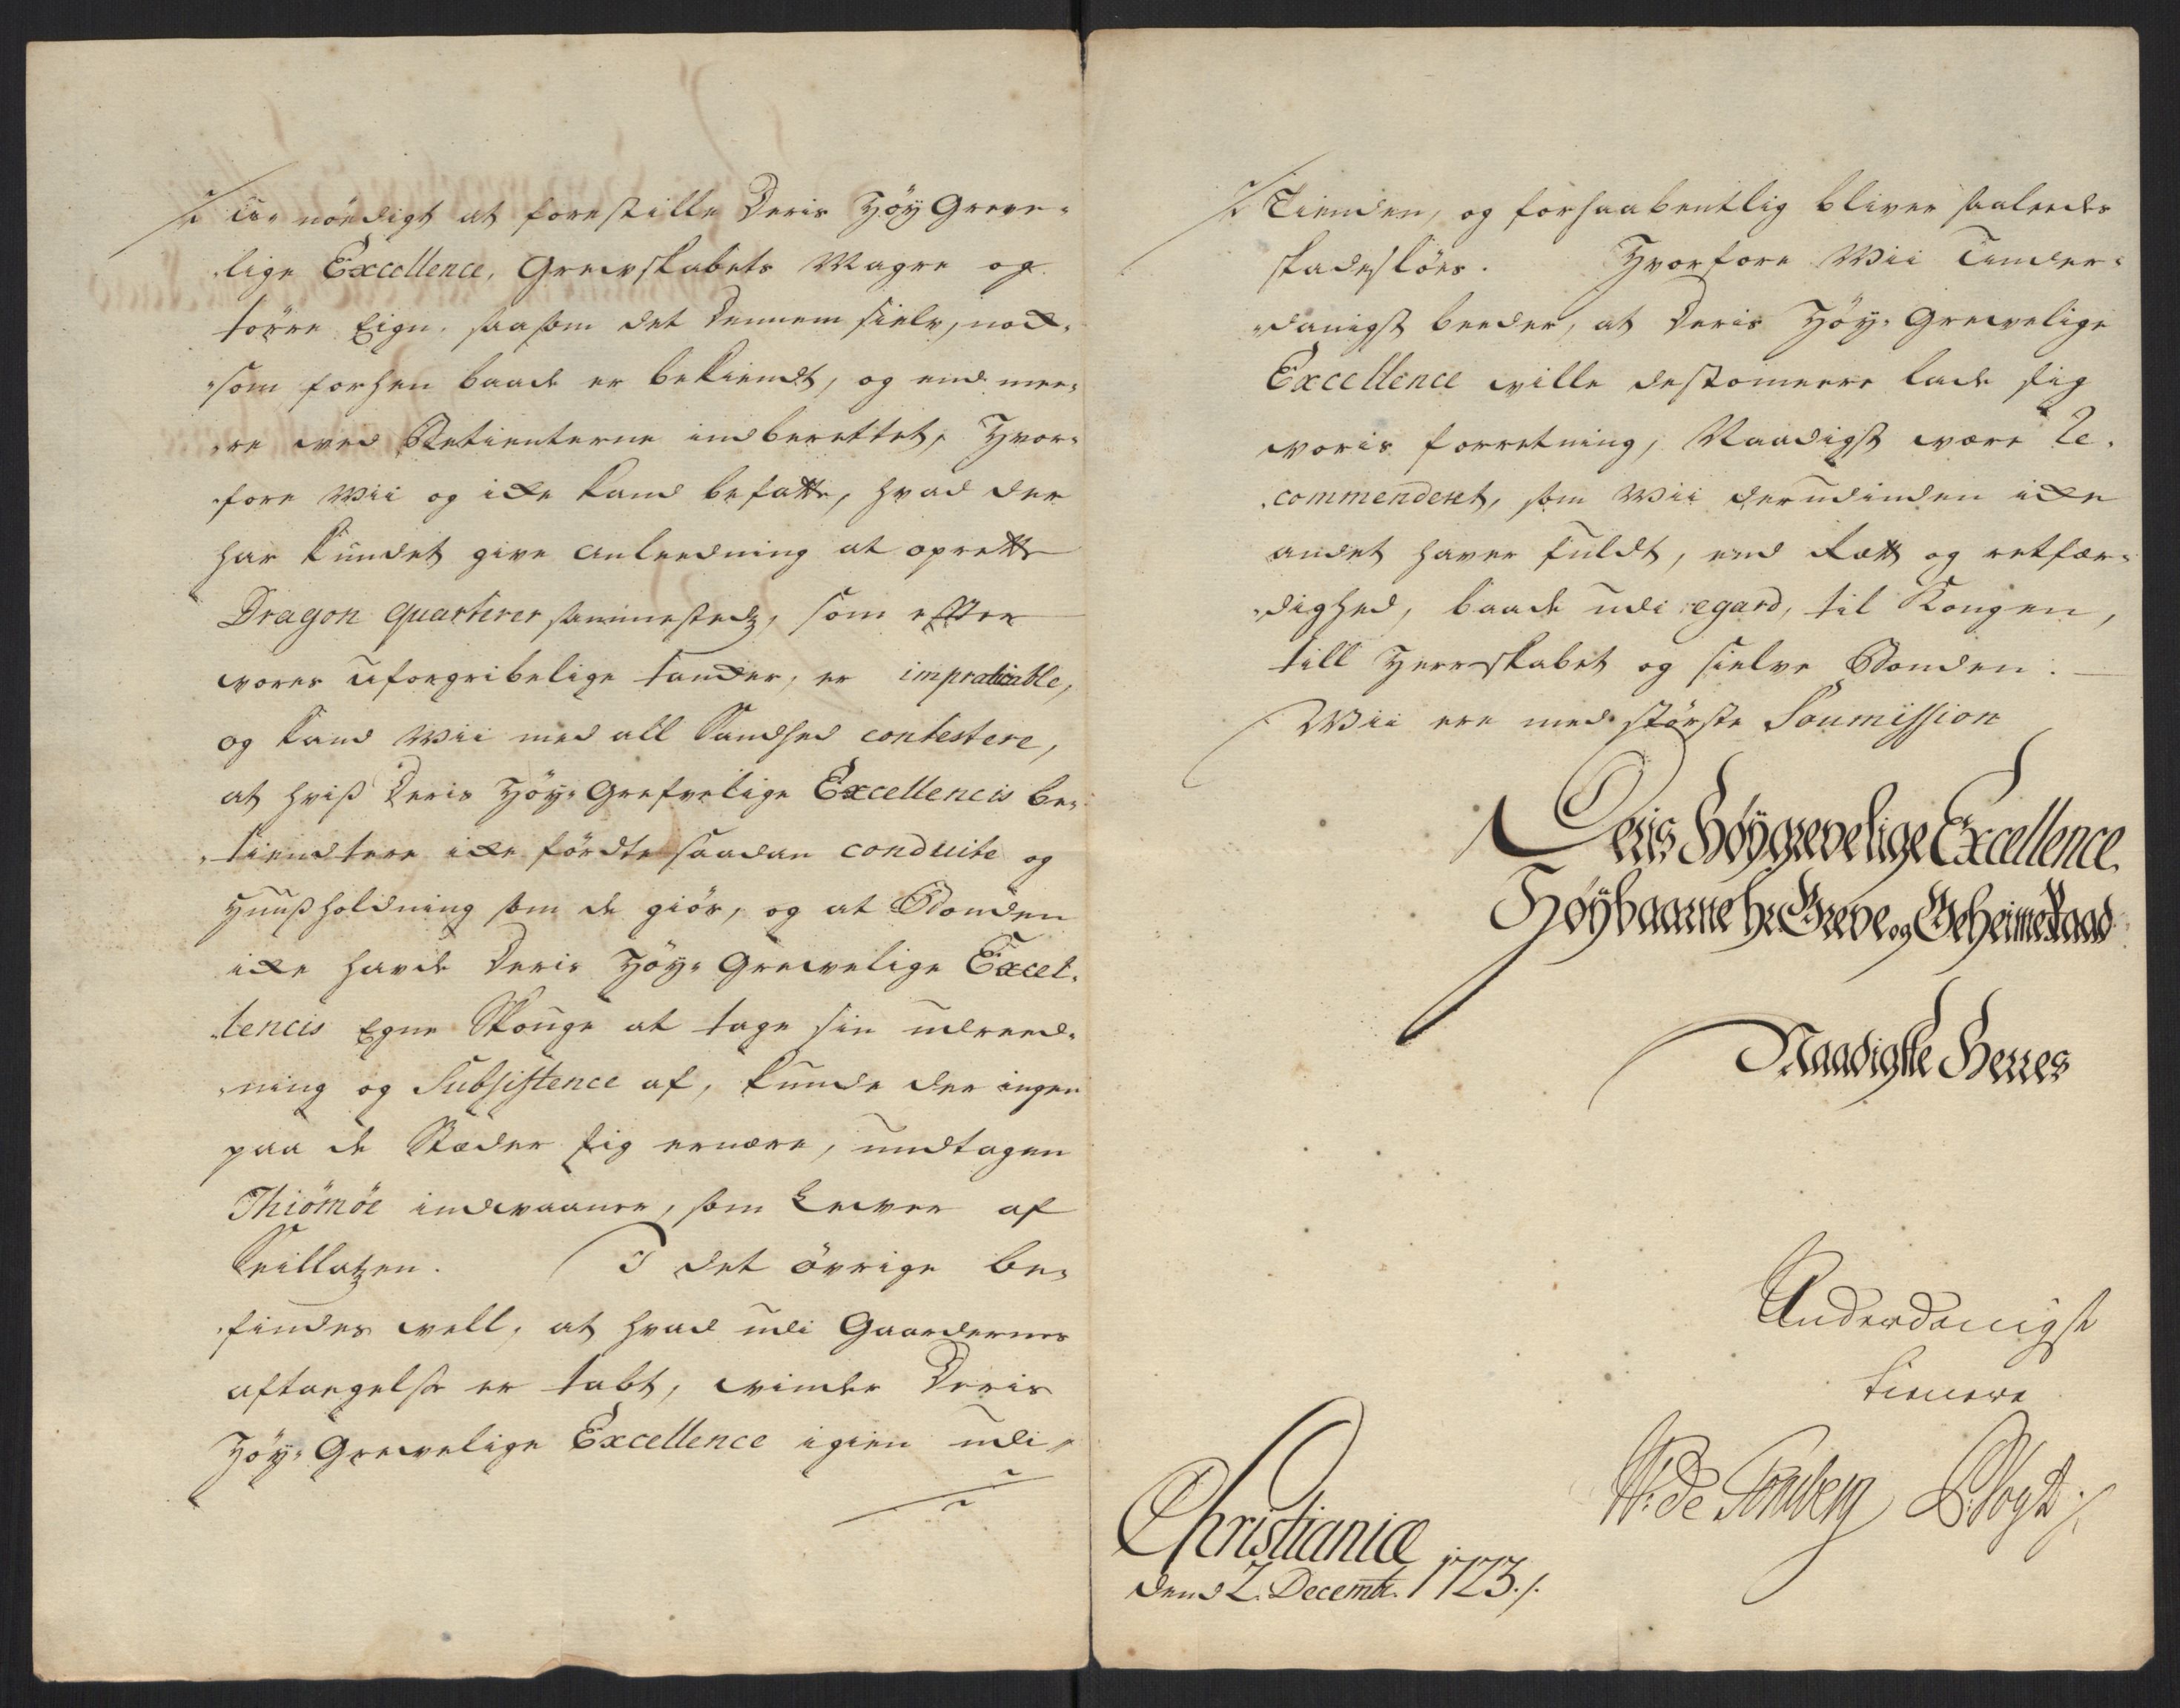 u-nöedigt at forestille Deris Höy Greve-
-lige Excellence, Grewskabets Magre og
törre Eign. saasom det Dennem sielv, nok-
-som forhen baade er bekiendt, og end mee-
-re wed Betienterne indberettet, Hvor-
-fore Wii og icke kand befatte, hvad der
har kundet give anleedning at oprette
Dragon quarterer sammestedz, som effter
wores uforgribelige tancker, er impraticable,
og kand Wii med all Sandhed contestere,
at hviß Deris Höy-Grefvelige Excellencis be-
-tiendtere icke förde saadan conduite og
Huußholdning som de giör, og at Bonden
icke hafde Deris Höy-Grewelige Excel-
-lencis Egne Skouge at tage sin udreed-
-ning og Subsistence af, kunde der ingen
paa de Stæder sig ernære, undtagen
Thiömöe indwaanere, som Lewer af
Seillatzen. I det övrige be-
-findes well, at hvad udi Gaardernes
aftaegelse er tabt, winder Deris
Höy-Grewelige Excellence igien udi
Tienden, og forhaabentlig bliver saaleedes
skadeslöes. Hvorfore Wii Under-
-danigst beeder, at Deris Höy-Grewelige
Excellence wille destomeere lade sig
woris forretning, Naadigst være Re-
-commenderet, som Wii derudinden icke
andet haver fuldt, end Rætt og retfær-
-dighed, baade udi regard, til Kongen,
till Herrskabet og sielve Bonden.
Wii ere med störste Soumission
Deris Høygrevelige Excellence
Høybaarne hr Greve og Geheime Raad
Naadigste Herres
Underdanigste
tienere
W: de Tonsberg
Christianiæ
dend 2. Decembr. 1723./.